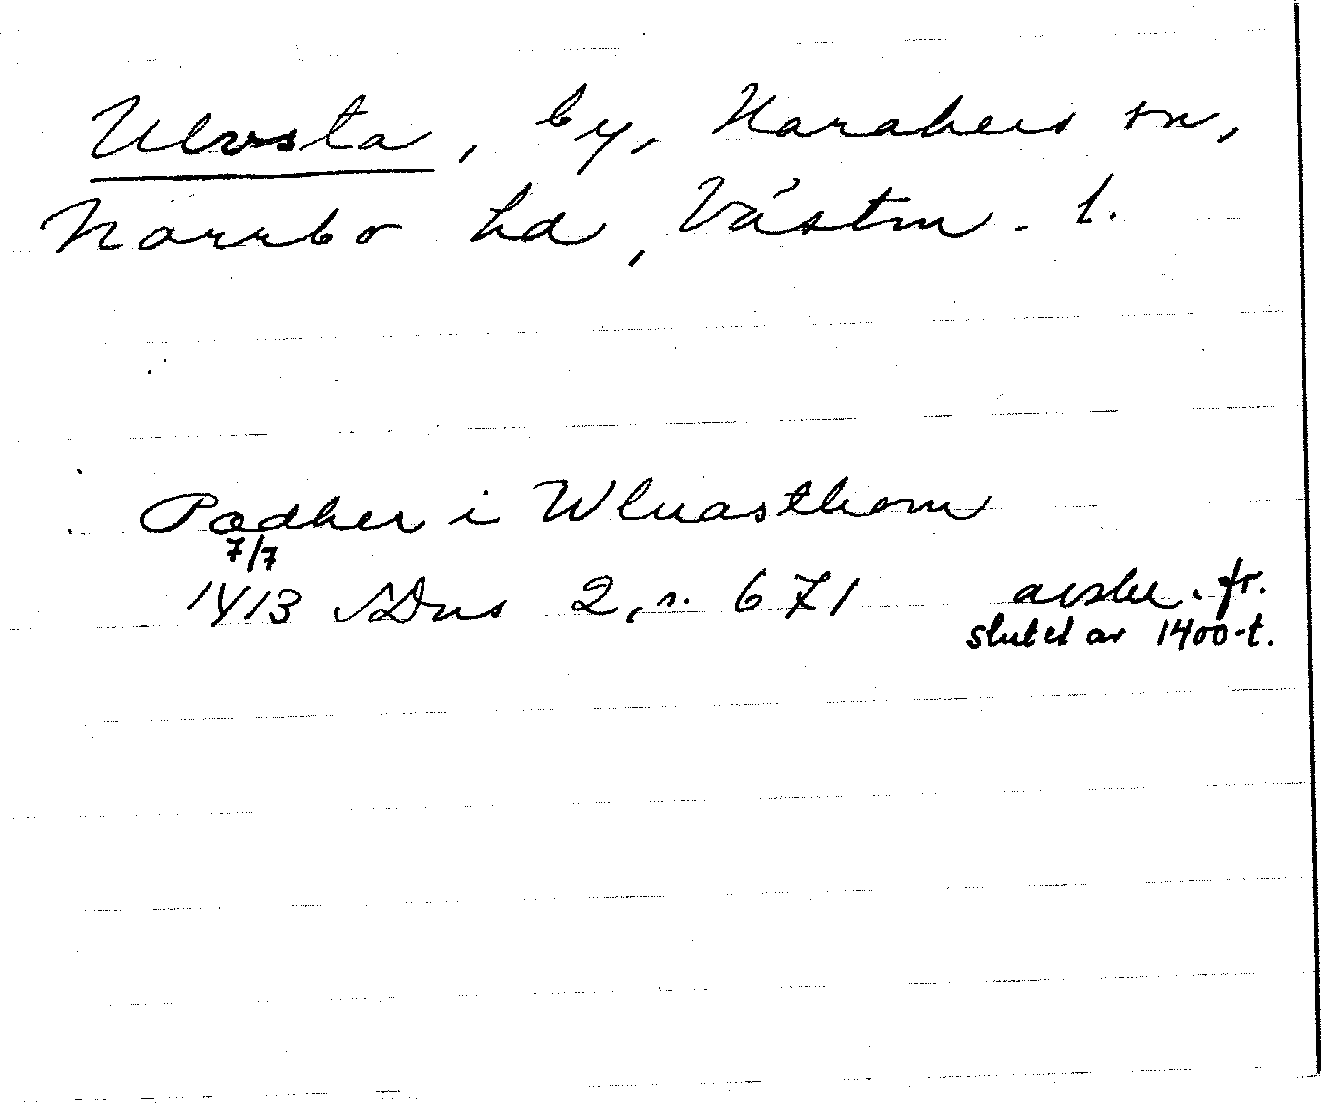 Ulvsta, by, Harakers sn,
Norrbo hd, Västm. l.
Pædher i Wluasthom
7/7
1413 SDns 2, s. 671 avskr. fr.
slutet av 1400-t.